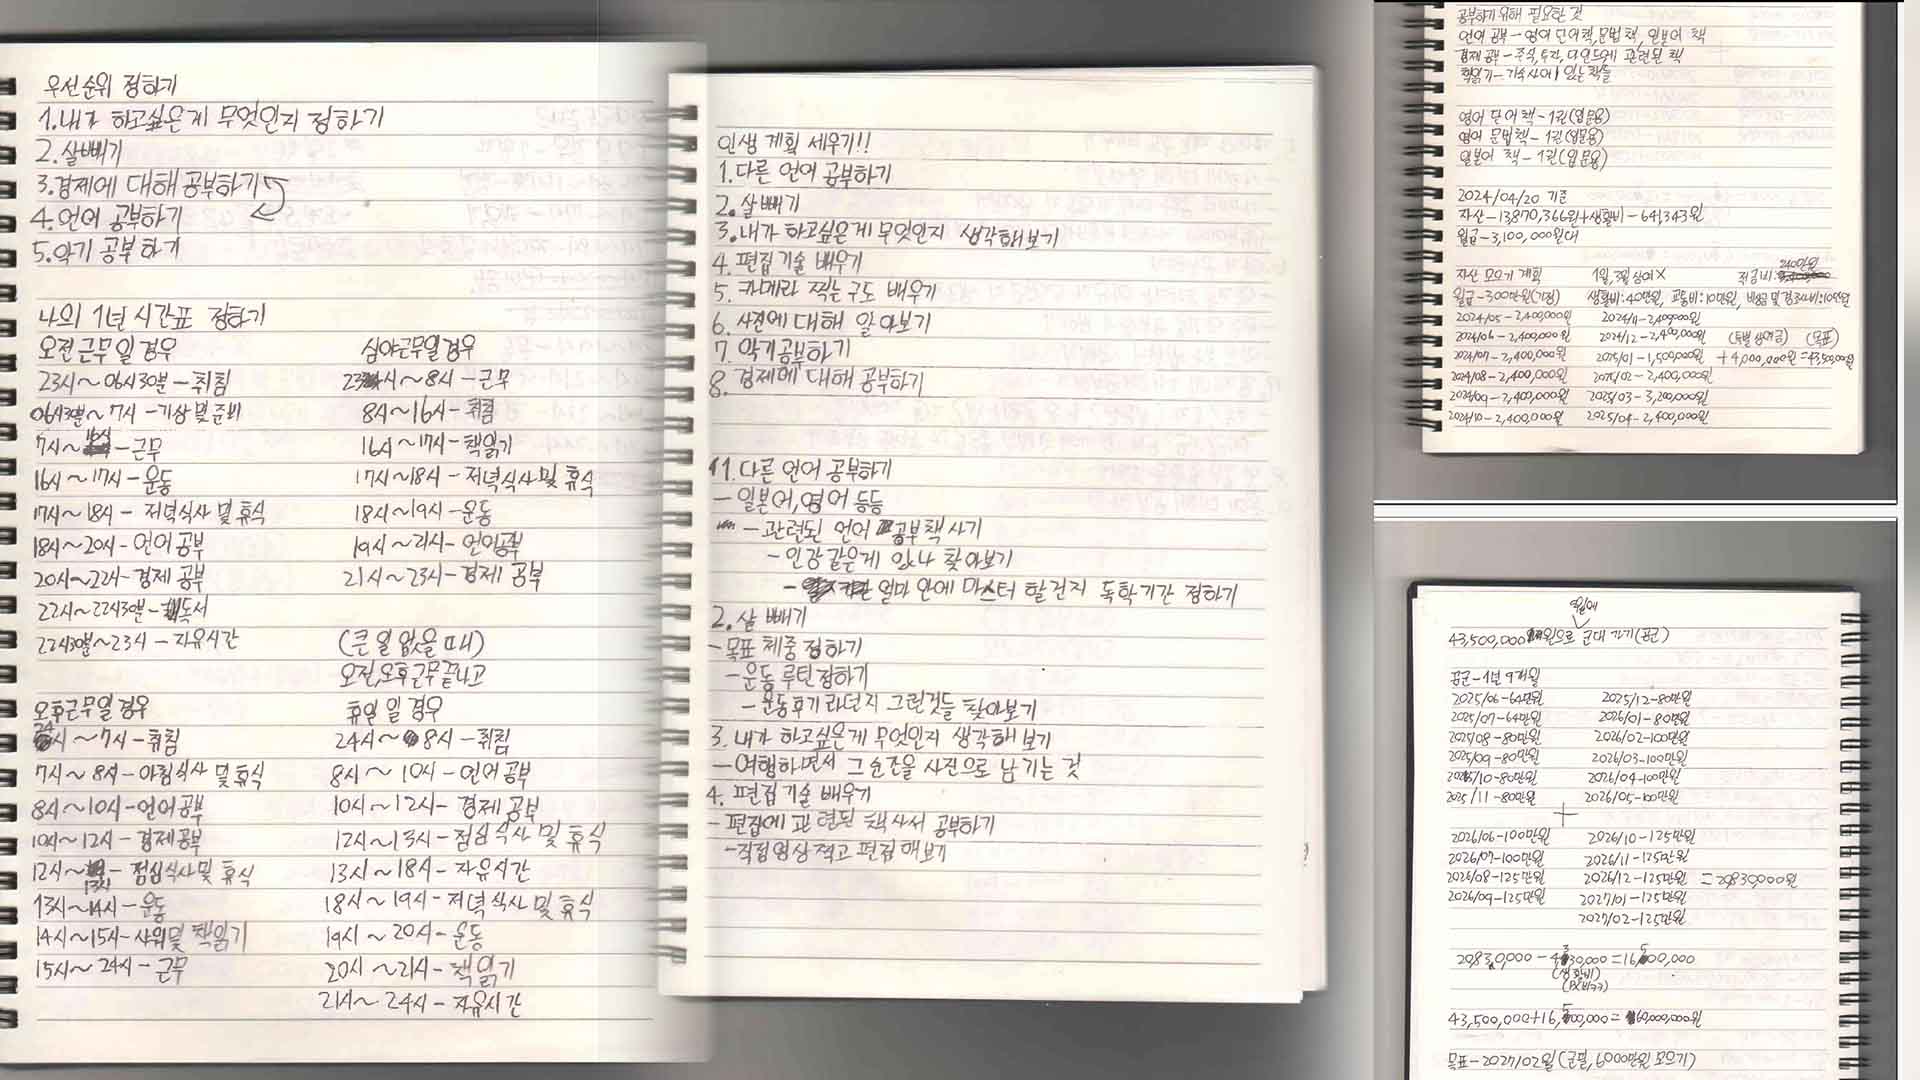 우선순위 정하기
1. 내가 하고싶은게 무엇인지 정하기
2. 살빼기
3. 경제에 대해 공부하기
4. 언어 공부하기
5. 악기 공부하기
나의 1년 시간표 정하기
오전근무일경우
23시~06시30분-취침
06시30분~7시-기상 및 준비
7시~16시-근무
16시~17시-운동
17시~18시-저녁식사 및 휴식
18시~20시-언어 공부
20시~22시-경제 공부
22시~22시30분-독서
22시30분~23시-자유시간
심야근무일경우
23시~8시-근무
8시~16시-취침
16시~17시-책읽기
17시~18시-저녁식사 및 휴식
18시~19시-운동
19시~21시-언어공부
21시~23시-경제 공부
(큰 일 없을 때)
오전,오후근무끝나고
오후근무일경우
24시~7시-취침
7시~8시-아침식사 및 휴식
8시~10시-언어공부
10시~12시-경제공부
12시~13시-점심식사 및 휴식
13시~14시-운동
14시~15시-샤워및 책읽기
15시~24시-근무
휴일 일 경우
24시~8시-취침
8시~10시-언어 공부
10시~12시-경제 공부
12시~13시-점심식사 및 휴식
13시~18시-자유시간
18시~19시-저녁식사 및 휴식
19시~20시-운동
20시~21시-책읽기
21시~24시-자유시간
인생 계획 세우기!!
1. 다른 언어 공부하기
2. 살빼기
3. 내가 하고싶은게 무엇인지 생각해보기
4. 편집 기술 배우기
5. 카메라 찍는 구도 배우기
6. 사진에 대해 알아보기
7. 악기공부하기
8. 경제에 대해 공부하기
1. 다른 언어 공부하기
-일본어,영어 등등
-관련된 언어 공부책 사기
-인강같은게 있나 찾아보기
-얼마 안에 마스터 할건지 독학기간 정하기
2. 살 빼기
-목표 체중 정하기
-운동 루틴정하기
-운동후기라던지 그런것들 찾아보기
3. 내가 하고싶은게 무엇인지 생각해 보기
-여행하면서 그순간을 사진으로 남기는 것
4. 편집 기술 배우기
-편집에 관련된 책사서 공부하기
-직접영상 찍고 편집해보기
공부하기 위해 필요한 것
언어 공부-영어 단어책,문법책, 일본어 책
경제 공부-주식,투자, 마인드에 관련된 책
책읽기-기숙사에 있는책들
영어 단어 책-1권(입문용)
영어 문법책-1권(입문용)
일본어 책-1권(입문용)
2024/04/20 기준
자산-13,870,366원+생활비-641,343원
월급-3,100,000원대
자산 모으기 계획 1월,3월 상여X 적금비:240만원
월급-300만원(가정) 생활비:40만원, 교통비:10만원, 비상금 및 경조사비:10만원
2024/05-2,400,000원 2024/11-2,400,000원
2024/06-2,400,000원 2024/12-2,400,000원 (특별 상여금) (목표)
2024/07-2,400,000원 2025/01-1,500,000원 +4,000,000원=43,500,000원
2024/08-2,400,000원 2025/02-2,400,000원
2024/09-2,400,000원 2025/03-3,200,000원
2024/10-2,400,000원 2025/04-2,400,000원
43,500,000원으로 군대 가기(공군)
공군-1년 9개월
2025/06-64만원 2025/12-80만원
2025/07-64만원 2026/01-80만원
2025/08-80만원 2026/02-100만원
2025/09-80만원 2026/03-100만원
2025/10-80만원 2026/04-100만원
2025/11-80만원 2026/05-100만원
+
2026/06-100만원 2026/10-125만원
2026/07-100만원 2026/11-125만원
2026/08-125만원 2026/12-125만원 =20830000원
2026/09-125만원 2027/01-125만원
2027/02-125만원
20,830,000-4,330,000=16,500,000
(생활비)
43,500,000+16,500,000=60,000,000원
목표-2027/02월(군필, 6000만원 모으기)